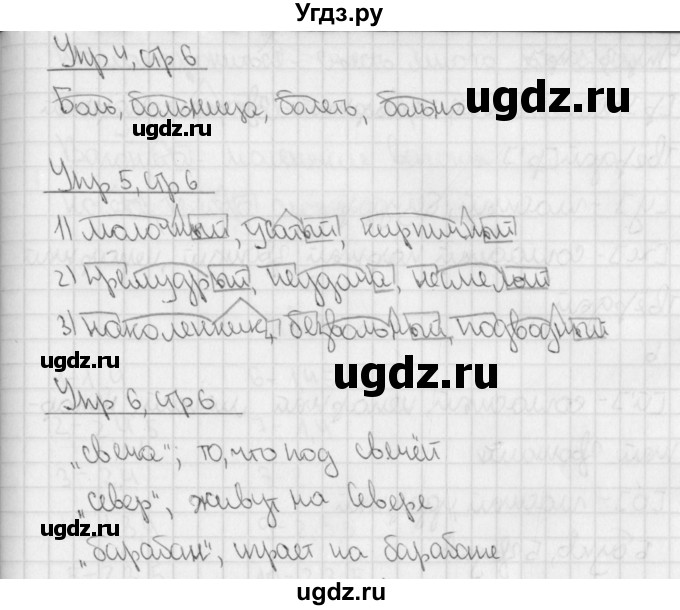 Угдз.ру
Упр 4, стр 6
Боль, больница, болеть, больно
ugdz.ru
ugdz.ru
Упр 5, стр 6
1) молочный, усатый, кирпичный
2) премудрый, неудача, несмелый
3) наколенник, безвольный, подводный
ugdz.ru
ugdz.ru
Упр 6, стр 6
„свеча"; то, что под свечёй
„север", живут на Севере
ugdz.ru
„барабан", играет на барабане
ugdz.ru